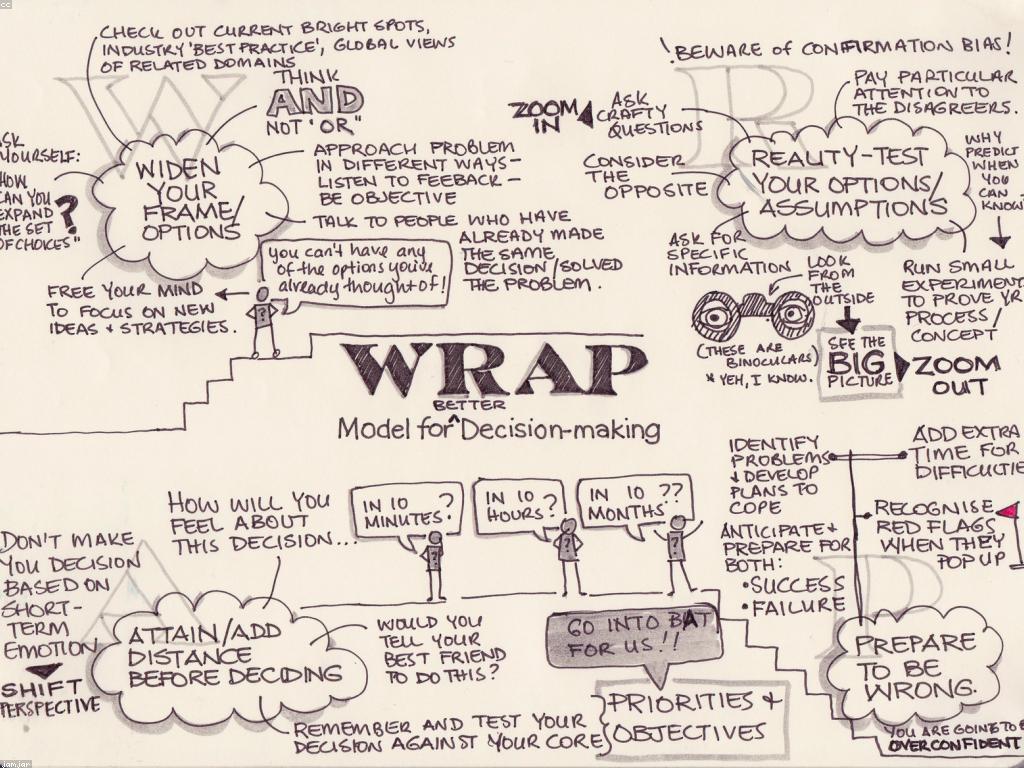 cc
CHECK OUT CURRENT BRIGHT SPOTS,
INDUSTRY 'BEST PRACTICE', GLOBAL VIEWS
OF RELATED DOMAINS
THINK
AND
NOT "OR"
W
ASK
YOURSELF:
"HOW
CAN YOU
EXPAND
THE SET
OF CHOICES"
?
WIDEN
YOUR
FRAME/
OPTIONS
APPROACH PROBLEM
IN DIFFERENT WAYS-
LISTEN TO FEEBACK-
BE OBJECTIVE
TALK TO PEOPLE WHO HAVE
ALREADY MADE
THE SAME
DECISION/SOLVED
THE PROBLEM.
FREE YOUR MIND
TO FOCUS ON NEW
IDEAS + STRATEGIES.
you can't have any
of the options you've
already thought of!
?
R
!BEWARE OF CONFIRMATION BIAS!
PAY PARTICULAR
ATTENTION TO
THE DISAGREERS.
ZOOM
IN
ASK
CRAFTY
QUESTIONS
CONSIDER
THE
OPPOSITE
REALITY-TEST
YOUR OPTIONS/
ASSUMPTIONS
WHY
PREDICT
WHEN
YOU
CAN
KNOW
ASK FOR
SPECIFIC
INFORMATION
LOOK
FROM
THE
OUTSIDE
(THESE ARE
BINOCULARS)
* YEH, I KNOW.
SEE THE
BIG
PICTURE
RUN SMALL
EXPERIMENT
TO PROVE YR
PROCESS/
CONCEPT
ZOOM
OUT
WRAP
BETTER
Model for ^ Decision-making
A
HOW WILL YOU
FEEL ABOUT
THIS DECISION...
IN 10
MINUTES?
IN 10
HOURS?
IN 10 ??
MONTHS
?
?
?
DON'T MAKE
YOU DECISION
BASED ON
SHORT-
TERM
EMOTION
SHIFT
PERSPECTIVE
ATTAIN/ADD
DISTANCE
BEFORE DECIDING
WOULD YOU
TELL YOUR
BEST FRIEND
TO DO THIS?
REMEMBER AND TEST YOUR
DECISION AGAINST YOUR CORE
GO INTO BAT
FOR US!!
PRIORITIES +
OBJECTIVES
P
IDENTIFY
PROBLEMS
+ DEVELOP
PLANS TO
COPE
ADD EXTRA
TIME FOR
DIFFICULTIE
RECOGNISE
RED FLAGS
WHEN THEY
POP UP
ANTICIPATE +
PREPARE FOR
BOTH:
•SUCCESS
•FAILURE
PREPARE
TO BE
WRONG.
YOU ARE GOING TO B
OVERCONFIDENT
jamjar